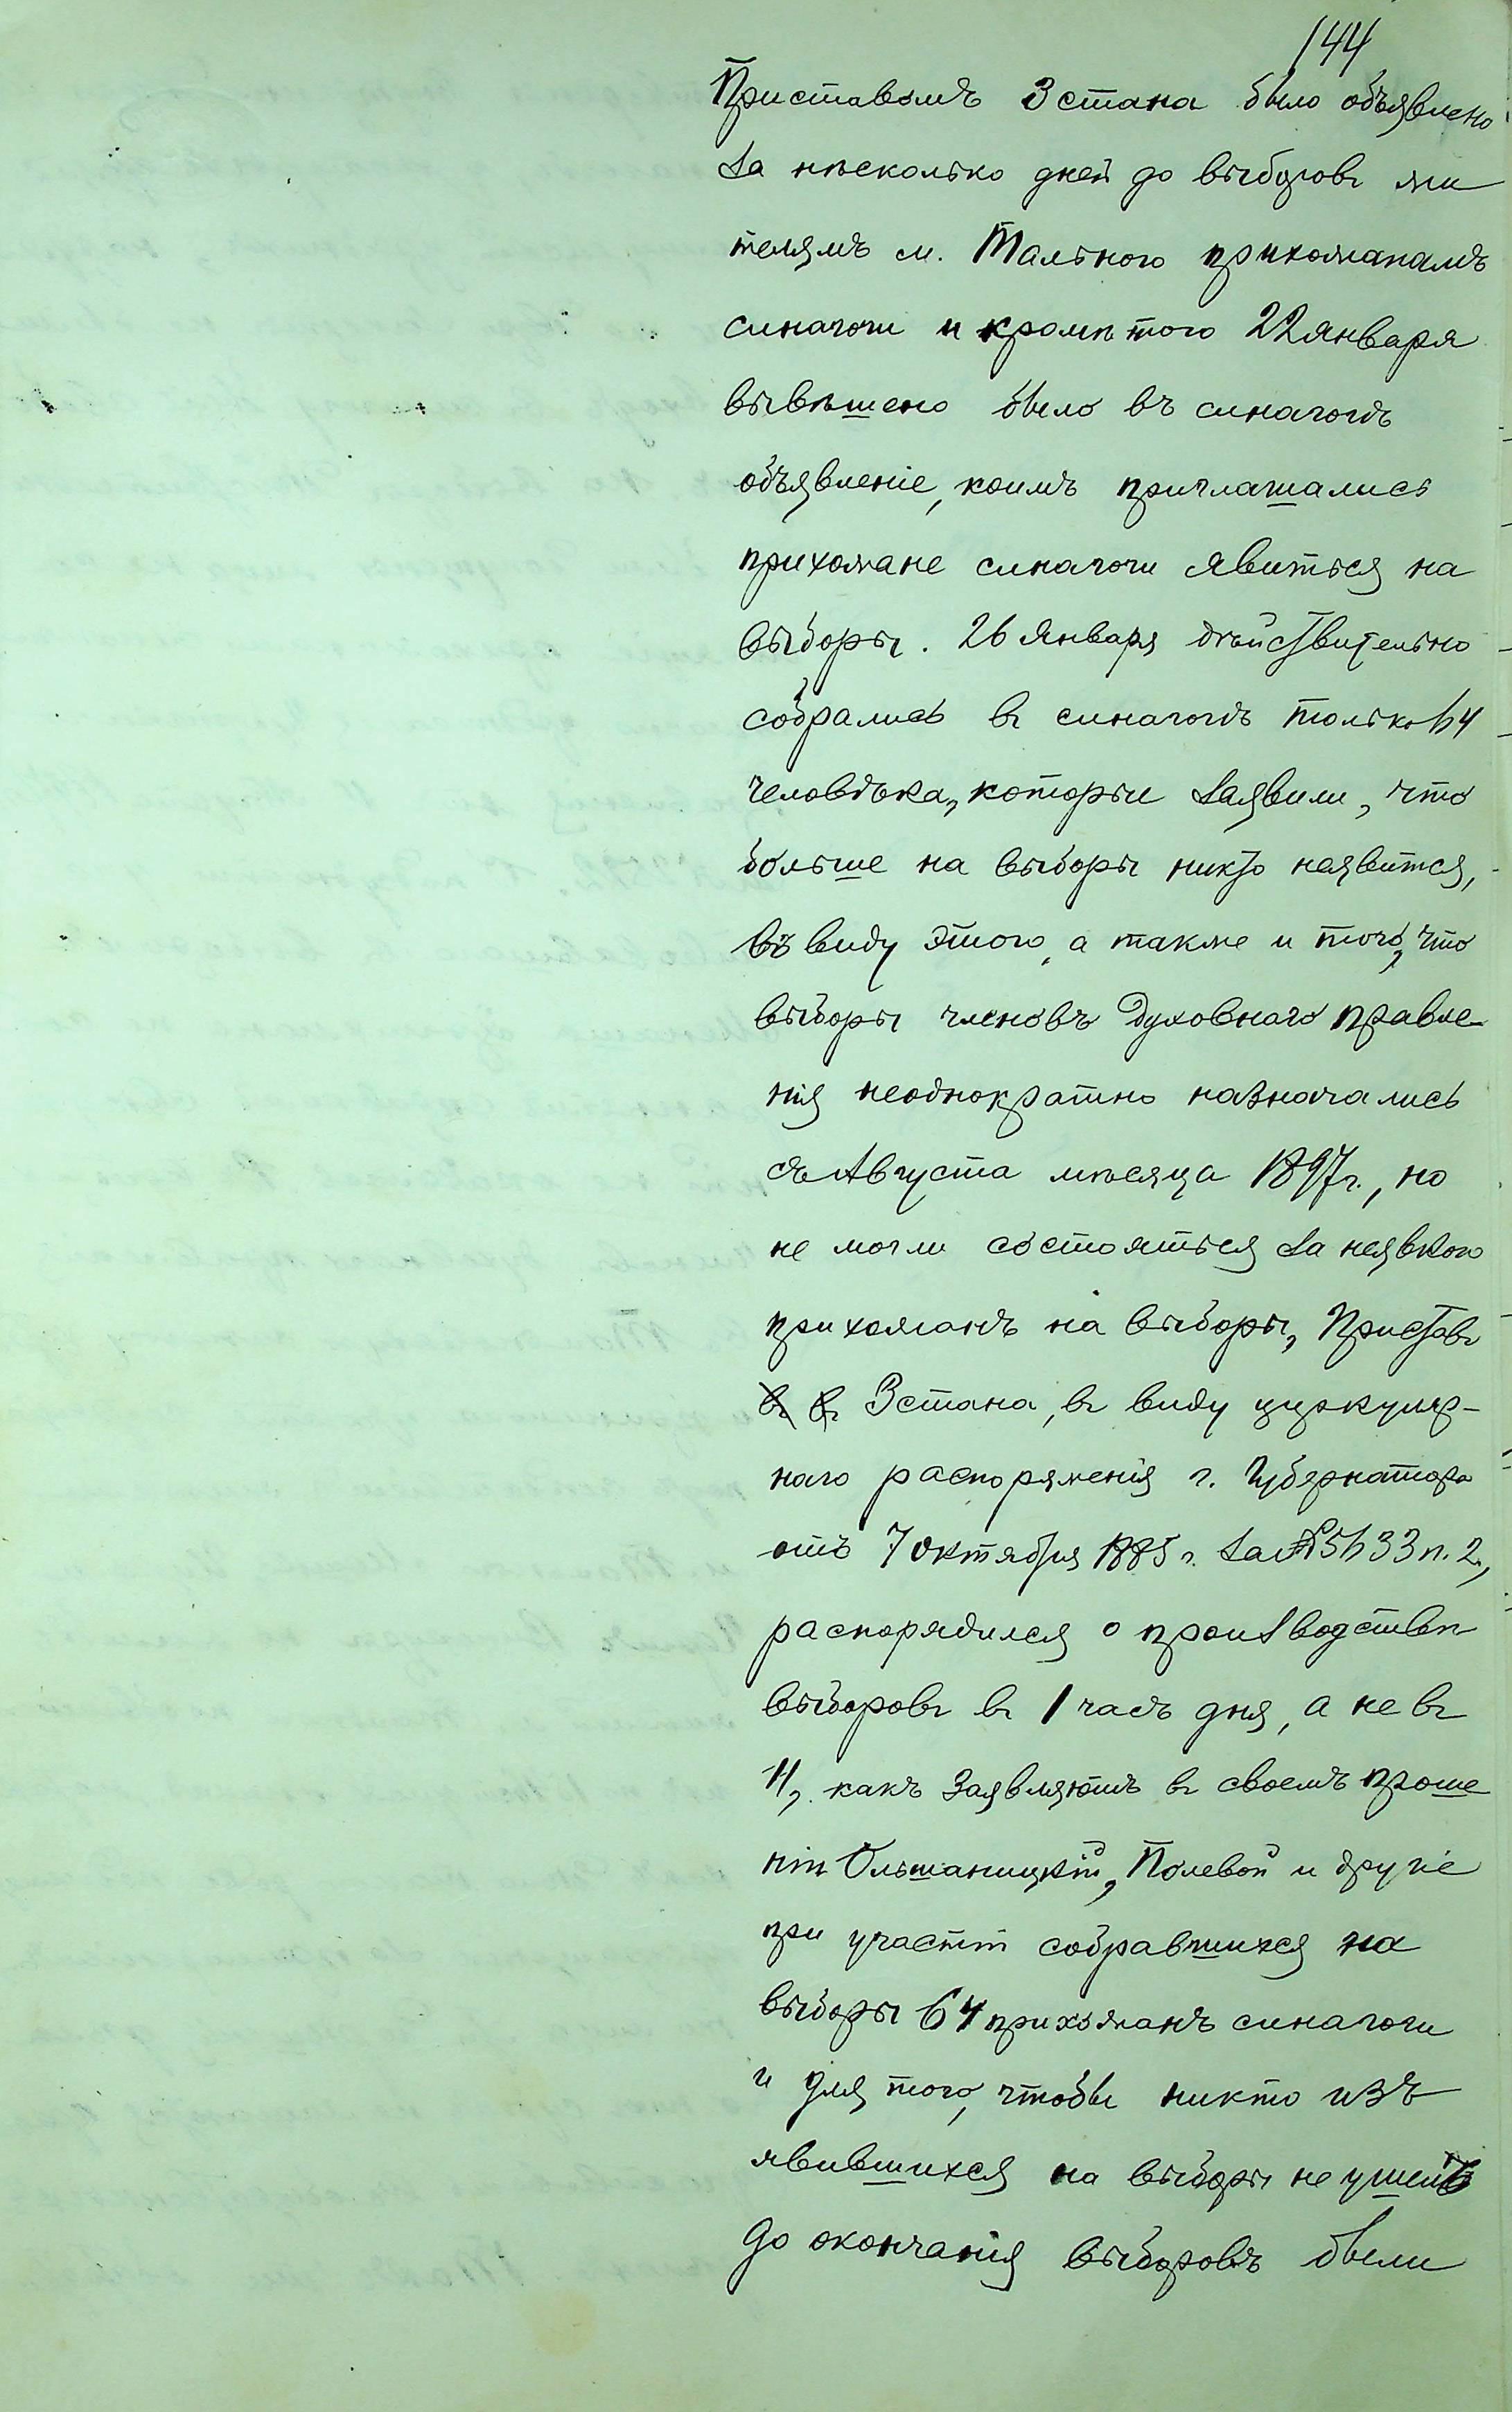 144
Приставомъ 3 стана было объявлено
за нѣсколько дней до выборовъ жи
телямъ м. Тального прихожанамъ
синагоги и кромѣ того 22 января
вывѣшено было въ синагогѣ
объявленіе, коимъ приглашались
прихожане синагоги явиться на
выборы. 26 Января дѣйствительно
собрались въ синагогѣ только 64
человѣка, которыи заявили, что
больше на выборы никто неявится,
въ виду этого, а также и того, что
выборы членовъ Духовнаго правле-
нія неоднократно назначались
съ Августа мѣсяца 1897 г., но
не могли состояться за неявкою
прихожанъ на выборы, Приставъ
въ въ 3 стана, въ виду циркуляр-
наго распоряженія г. Губернатора
отъ 7 Октября 1885 г. за № 5633 п. 2,
распорядился о производствѣ
выборовъ въ 1 часъ дня, а не въ
11, какъ заявляютъ въ своемъ проше
ніи Ольшаницкій, Полевой и другіе
при участіи собравшихся на
выборы 64 прихожанъ синагоги
и для того, чтобы никто изъ
явившихся на выборы не ушелъ
до окончанія выборовъ были